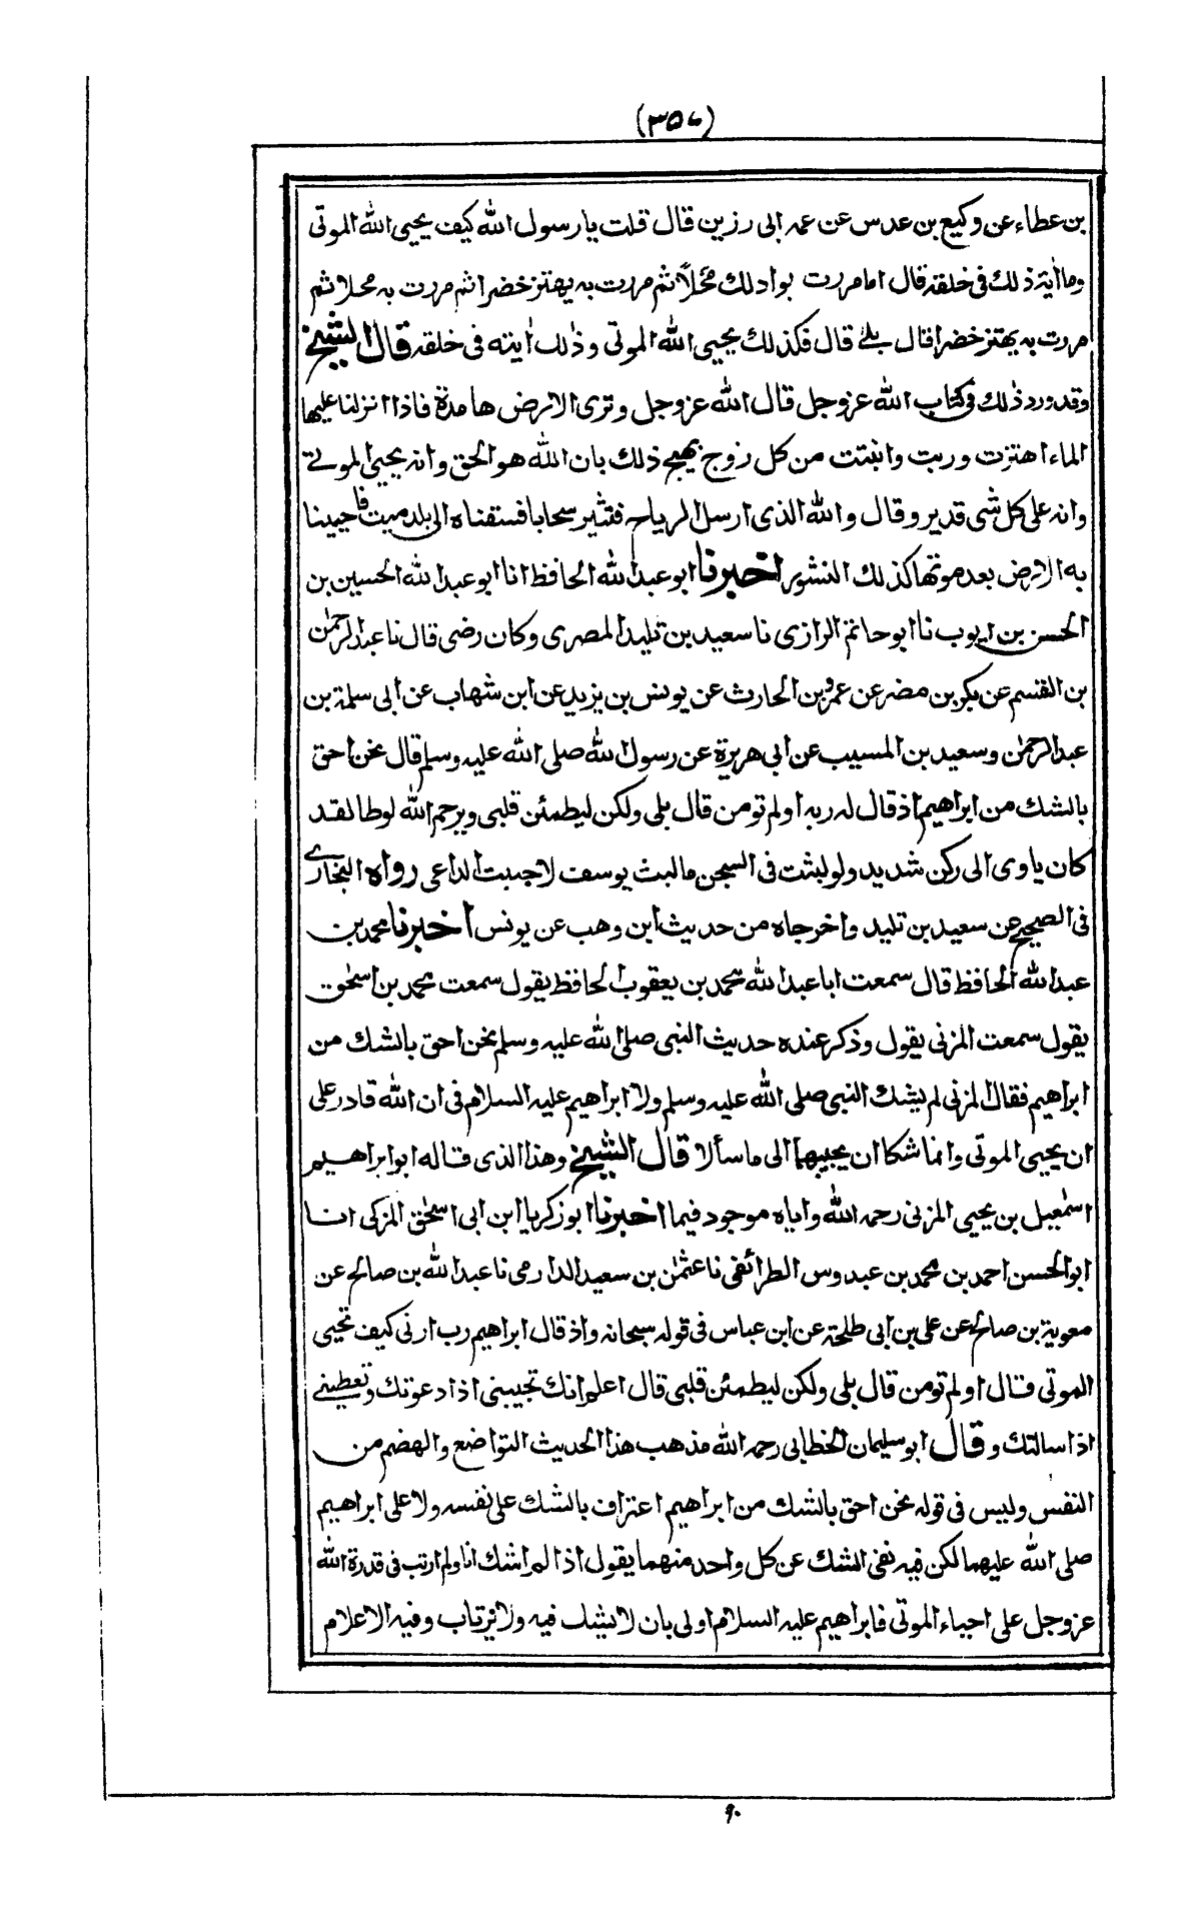 (٣٥٧)
بن عطاء عن وكيع بن عدس عن عمه ابى رزين قال قلت يا رسول الله كيف يحيى الله الموتى
وما اية ذلك فى خلقه قال اما مررت بواد لك محلاً ثم مررت به يهتز خضرا ثم مررت به محلا ثم
مررت به يهتز خضرا قال بلى قال فكذلك يحيى الله الموتى وذلك ايته فى خلقه قال الشيخ
وقد ورد ذلك فى كتاب الله عز وجل قال الله عز وجل وترى الارض هامدة فاذا انزلنا عليها
الماء اهتزت وربت وانبتت من كل زوج بهيج ذلك بان الله هو الحق وانه يحيى الموتى
وانه على كل شى قدير وقال والله الذى ارسل الرياح فتثير سحابا فسقناه الى بلد ميت فاحيينا
به الارض بعد موتها كذلك النشور اخبرنا ابو عبد الله الحافظ انا ابو عبد الله الحسين بن
الحسن بن ايوب نا ابو حاتم الرازى نا سعيد بن تليد المصرى وكان رضى قال نا عبد الرحمٰن
بن القسم عن بكر بن مضر عن عمرو بن الحارث عن يونس بن يزيد عن ابن شهاب عن ابى سلمة بن
عبد الرحمٰن وسعيد بن المسيب عن ابى هريرة عن رسول الله صلى الله عليه وسلم قال نحن احق
بالشك من ابراهيم اذ قال له ربه اولم تومن قال بلى ولكن ليطمئن قلبى ويرحم الله لوطا لقد
كان ياوى الى ركن شديد ولو لبثت فى السجن ما لبث يوسف لاجبت الداعى رواه البخارى
فى الصحيح عن سعيد بن تليد واخرجاه من حديث ابن وهب عن يونس اخبرنا محمد بن
عبد الله الحافظ قال سمعت ابا عبد الله محمد بن يعقوب الحافظ يقول سمعت محمد بن اسحٰق
يقول سمعت المزنى يقول وذكر عنده حديث النبى صلى الله عليه وسلم نحن احق بالشك من
ابراهيم فقال المزنى لم يشك النبى صلى الله عليه وسلم ولا ابراهيم عليه السلام فى ان الله قادر على
ان يحيى الموتى وانما شكا ان يجيبهما الى ما سألا قال الشيخ وهذا الذى قاله ابو ابراهيم
اسمٰعيل بن يحيى المزنى رحمه الله واياه موجود فيما اخبرنا ابو زكريا ابن ابى اسحٰق المزكى انا
ابو الحسن احمد بن محمد بن عبدوس الطرائفى نا عثمٰن بن سعيد الدارمى نا عبد الله بن صالح عن
معوية بن صالح عن على بن ابى طلحة عن ابن عباس فى قوله سبحانه واذ قال ابراهيم رب ارنى كيف تحيى
الموتى قال اولم تومن قال بلى ولكن ليطمئن قلبى قال اعلم انك تجيبنى اذا دعوتك وتعطينى
اذا سالتك وقال ابو سليمان الخطابى رحمه الله مذهب هذا الحديث التواضع والهضم من
النفس وليس فى قوله نحن احق بالشك من ابراهيم اعتراف بالشك على نفسه ولا على ابراهيم
صلى الله عليهما لكن فيه نفى الشك عن كل واحد منهما يقول اذا لم اشك انا ولم ارتب فى قدرة الله
عز وجل على احياء الموتى فابراهيم عليه السلام اولى بان لا يشك فيه ولا يرتاب وفيه الاعلام
٩٠